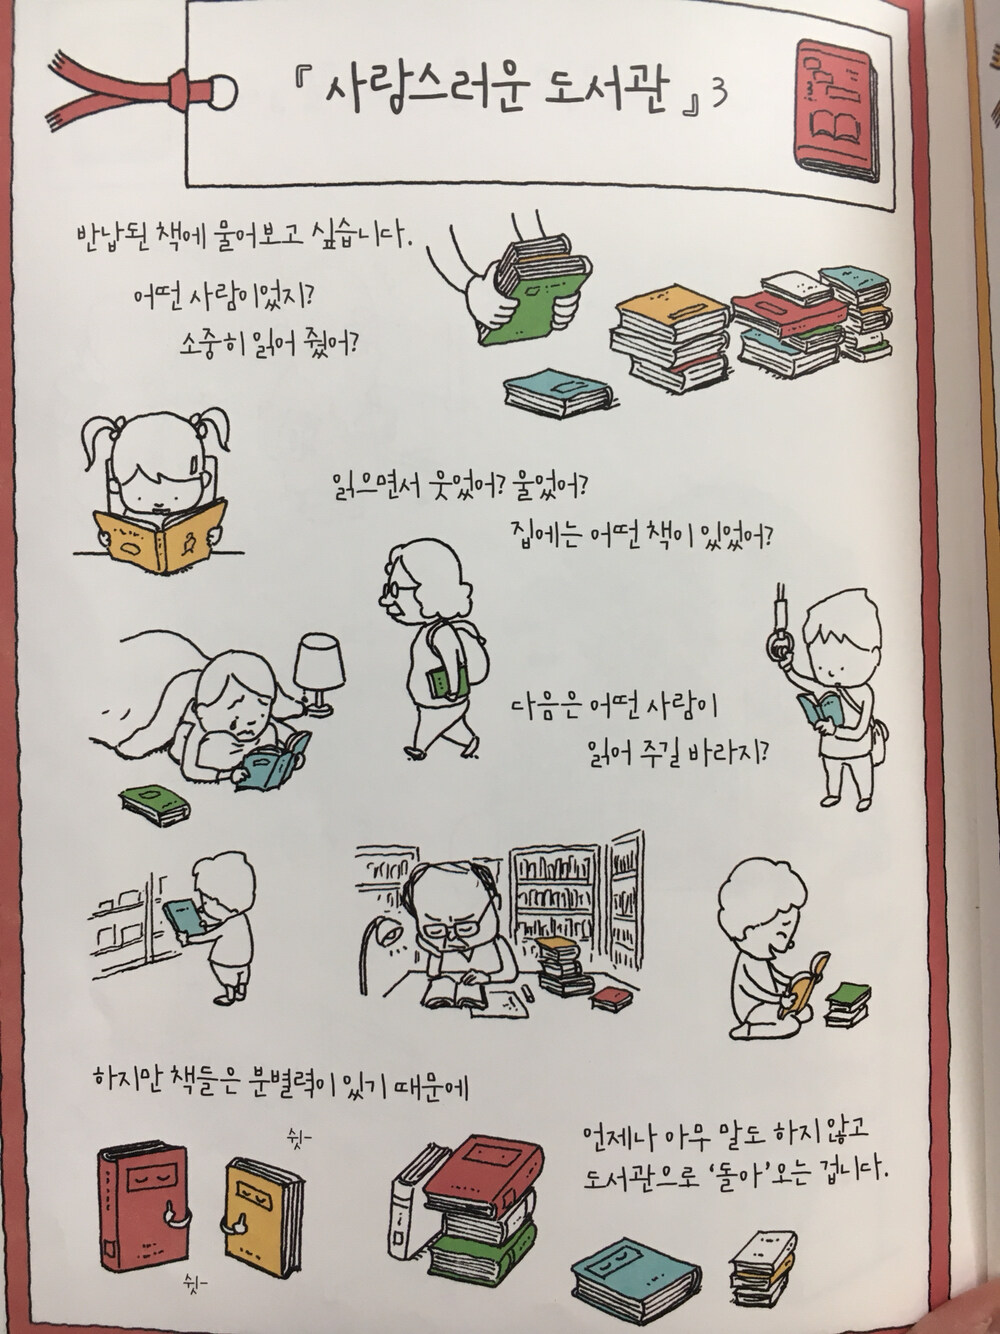 『 사랑스러운 도서관 』 3
반납된 책에 물어보고 싶습니다.
어떤 사람이었지?
소중히 읽어 줬어?
읽으면서 웃었어? 울었어?
집에는 어떤 책이 있었어?
다음은 어떤 사람이
읽어 주길 바라지?
하지만 책들은 분별력이 있기 때문에
쉿-
쉿-
언제나 아무 말도 하지 않고
도서관으로 ‘돌아’오는 겁니다.